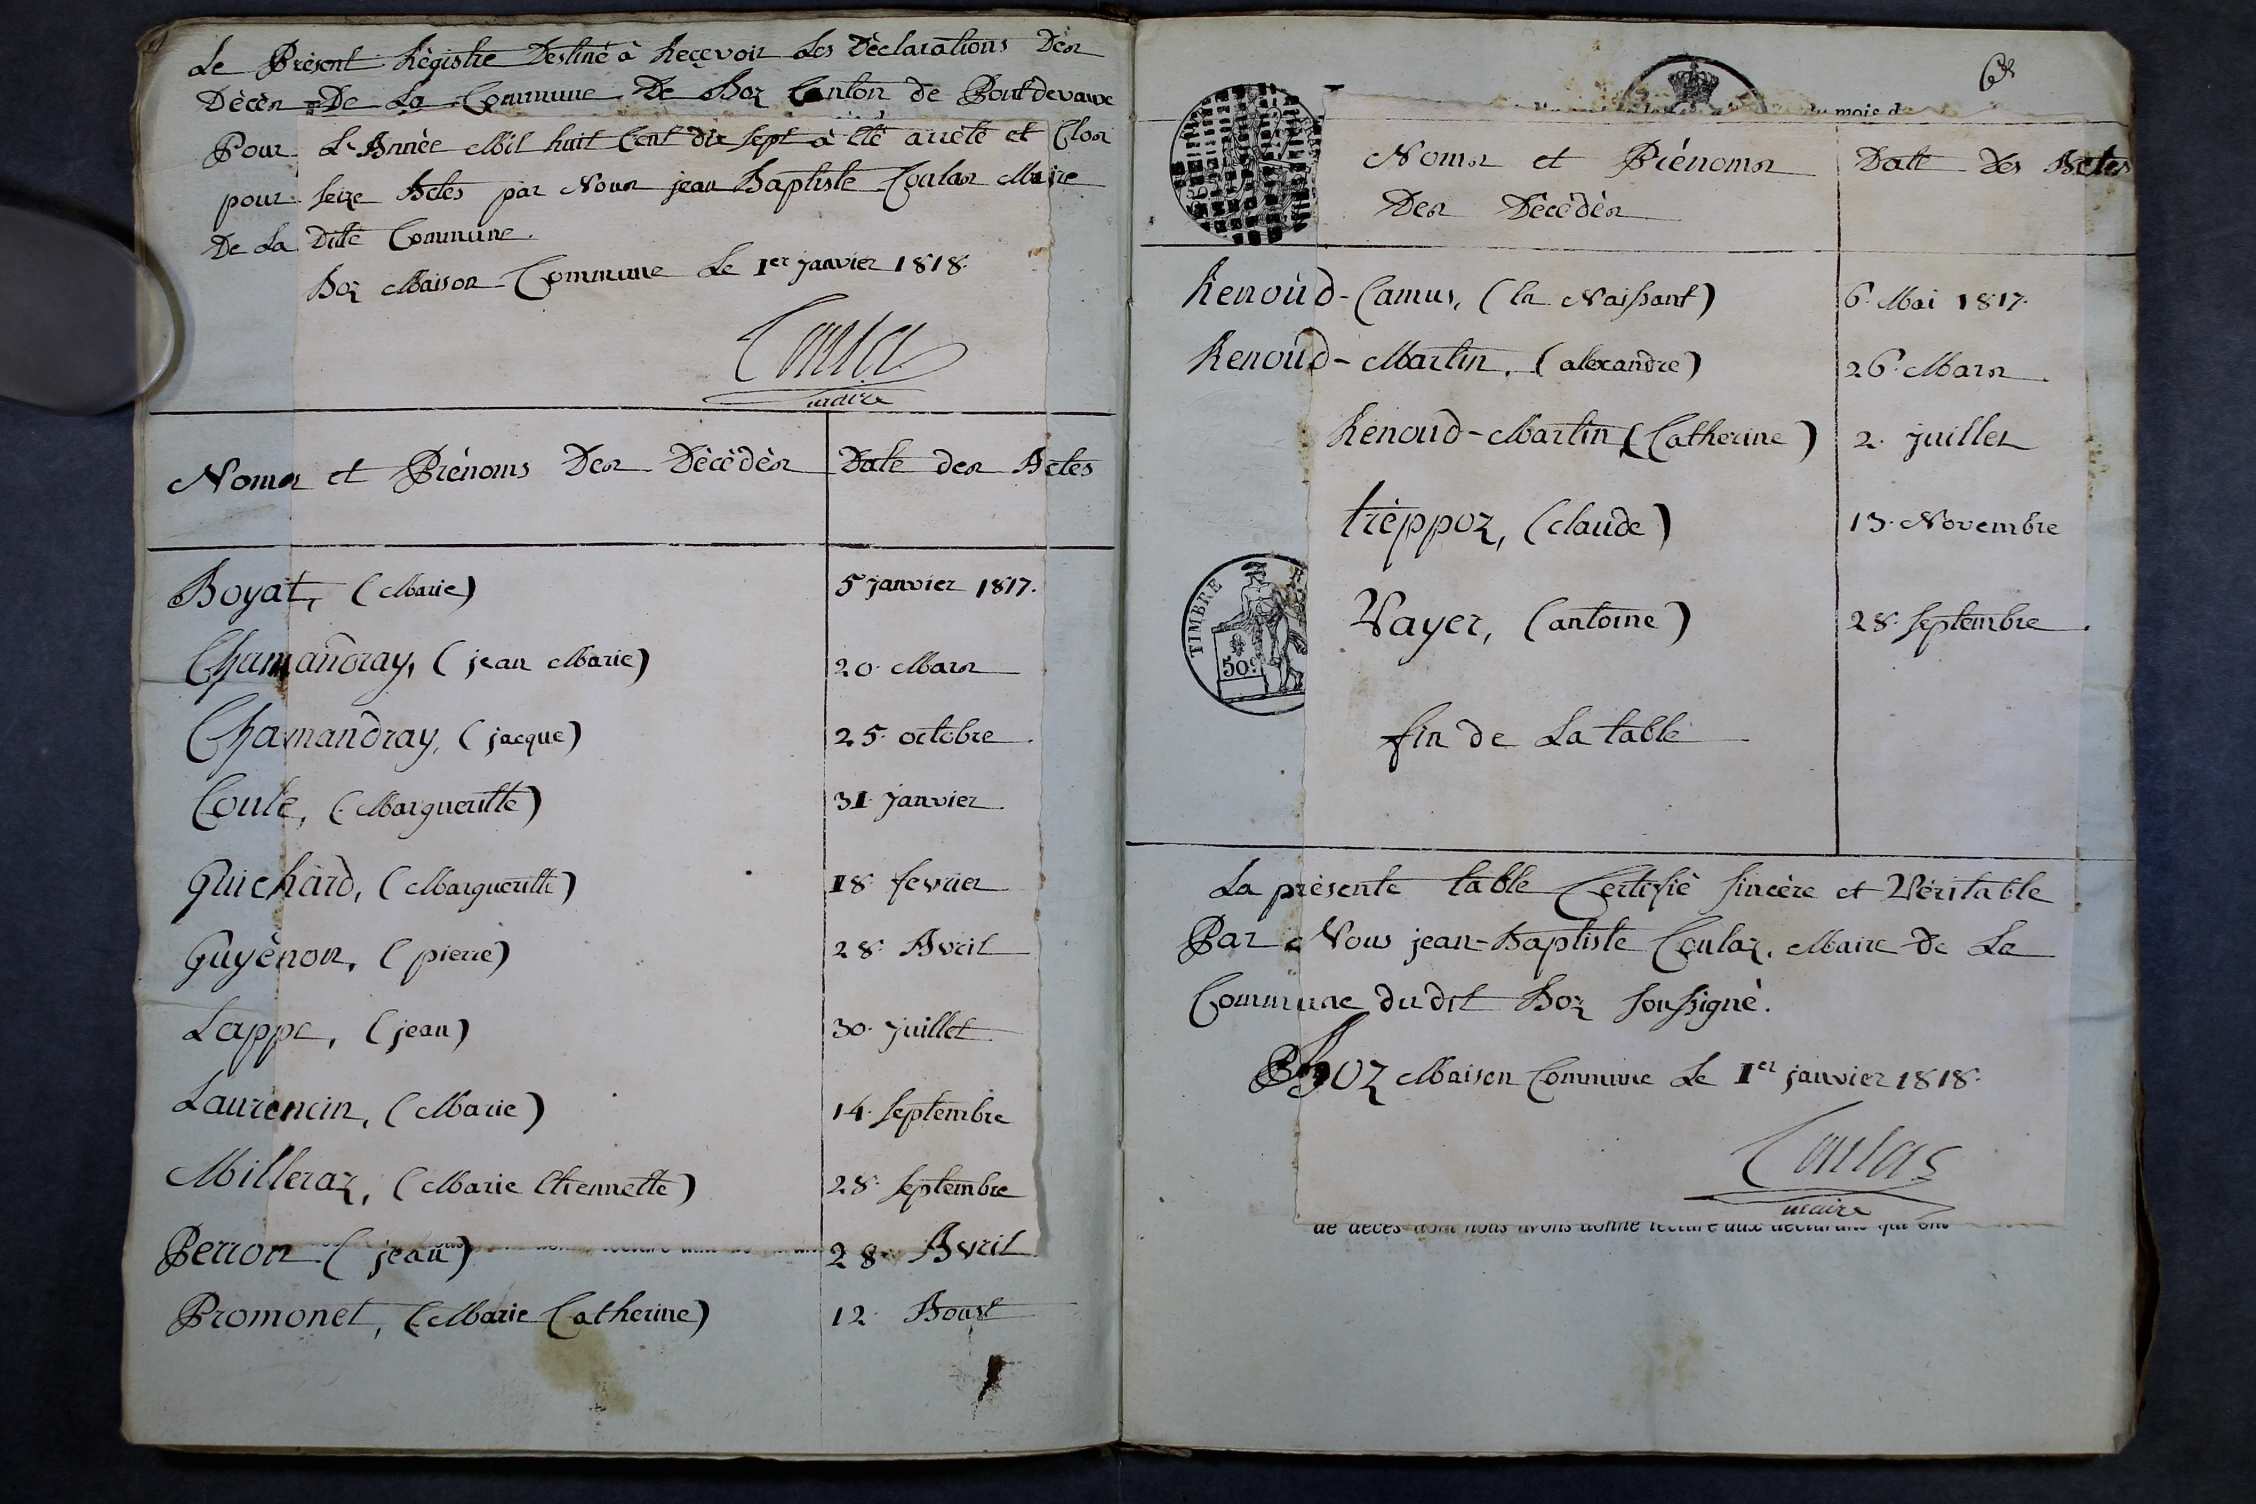 Le Présent Régistre Destiné à Recevoir Les Déclarations Des
Décès De La Commune De Boz Canton de Pontdevaux
Pour L'Année Mil huit Cent dix sept à été arrêté et Clos
pour seize Actes par Nous jean Baptiste Coulas Maire
De La Dite Commune.
Boz Maison Commune Le 1er janvier 1818.
Coulas
maire
Noms et Prénoms Des Décédés Date des Actes
Boyat, (Marie) 5 janvier 1817.
Chamandray, (jean Marie) 20. Mars
Chamandray, (jacque) 25. octobre.
Coule, (Margueritte) 31. janvier.
Guichard, (Margueritte) 18. fevrier
Guyénon, (pierre) 28. Avril
Lappe, (jean) 30. juillet
Laurencin, (Marie) 14. septembre
Milleraz, (Marie Etiennette) 28. septembre
Perron (jean) 28. Avril
Promonet, (Marie Catherine) 12. Aoust
6e
du mois d
Noms et Prénoms Date Des Actes
Des Décédés
Renoud-Camus, (la Naissant) 6. Mai 1817.
Renoud-Martin, (alexandre) 26. Mars.
Renoud-Martin (Catherine) 2. juillet
TIMBRE
50c
tréppoz, (claude) 13. Novembre
Vayer, (antoine) 28. septembre.
fin de La table
La présente table Certifié sincère et Véritable
Par Nous jean-Baptiste Coulaz, Maire De La
Commune dudit Boz soussigné.
Boz Maison Commune Le 1er janvier 1818.
Coulas
maire
de décès dont nous avons donné lecture aux déclarans qui ont